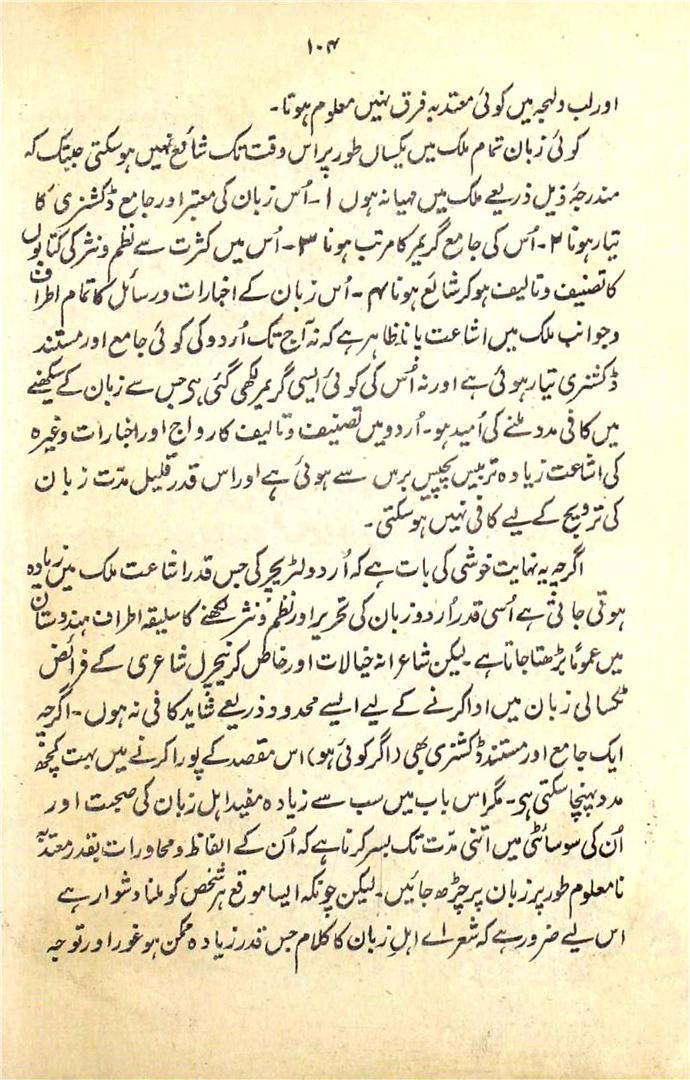 ۱۰۴
اور لب ولہجہ میں کوئی معتدبہ فرق نہیں معلوم ہوتا۔
کوئی زبان تمام ملک میں یکساں طور پر اس وقت تک شائع نہیں ہوسکتی جبتک کہ
مندرجۂ ذیل ذریعے ملک میں مہیا نہ ہوں ۱۔ اُس زبان کی معتبر اور جامع ڈکشنری کا
تیار ہونا ۲۔ اُس کی جامع گریمر کا مرتب ہونا ۳۔ اُس میں کثرت سے نظم ونثر کی کتابوں
کا تصنیف وتالیف ہوکر شائع ہونا ۴۔ اُس زبان کے اخبارات ورسائل کا تمام اطراف
وجوانب ملک میں اشاعت پانا ظاہر ہے کہ نہ آج تک اُردو کی کوئی جامع اور مستند
ڈکشنری تیار ہوئی ہے اور نہ اُس کی کوئی ایسی گریمر لکھی گئی ہی جس سے زبان کے سیکھنے
میں کافی مدد ملنے کی اُمید ہو۔ اُردو میں تصنیف وتالیف کا رواج اور اخبارات وغیرہ
کی اشاعت زیادہ تر بیس پچیس برس سے ہوئی ہے اور اس قدر قلیل مدّت زبان
کی ترویج کے لیے کافی نہیں ہوسکتی۔
اگرچہ یہ نہایت خوشی کی بات ہے کہ اُردو لٹریچر کی جس قدر اشاعت ملک میں زیادہ
ہوتی جاتی ہے اُسی قدر اُردو زبان کی تحریر اور نظم ونثر لکھنے کا سلیقہ اطراف ہندوستان
میں عموماً بڑھتا جاتا ہے۔ لیکن شاعرانہ خیالات اور خاص کر نیچرل شاعری کے فرائض
ٹکسالی زبان میں ادا کرنے کے لیے ایسے محدود ذریعے شاید کافی نہ ہوں۔ اگرچہ
ایک جامع اور مستند ڈکشنری بھی (اگر کوئی ہو) اس مقصد کے پورا کرنے میں بہت کچھ
مدد پہنچا سکتی ہی۔ مگر اس باب میں سب سے زیادہ مفید اہل زبان کی صحبت اور
اُن کی سوسائٹی میں اتنی مدّت تک بسر کرنا ہے کہ اُن کے الفاظ ومحاورات بقدر معتدّبہ
نامعلوم طور پر زبان پر چڑھ جائیں۔ لیکن چونکہ ایسا موقع ہر شخص کو ملنا دشوار ہے
اس لیے ضرور ہے کہ شعراے اہلِ زبان کا کلام جس قدر زیادہ ممکن ہو غور اور توجہ